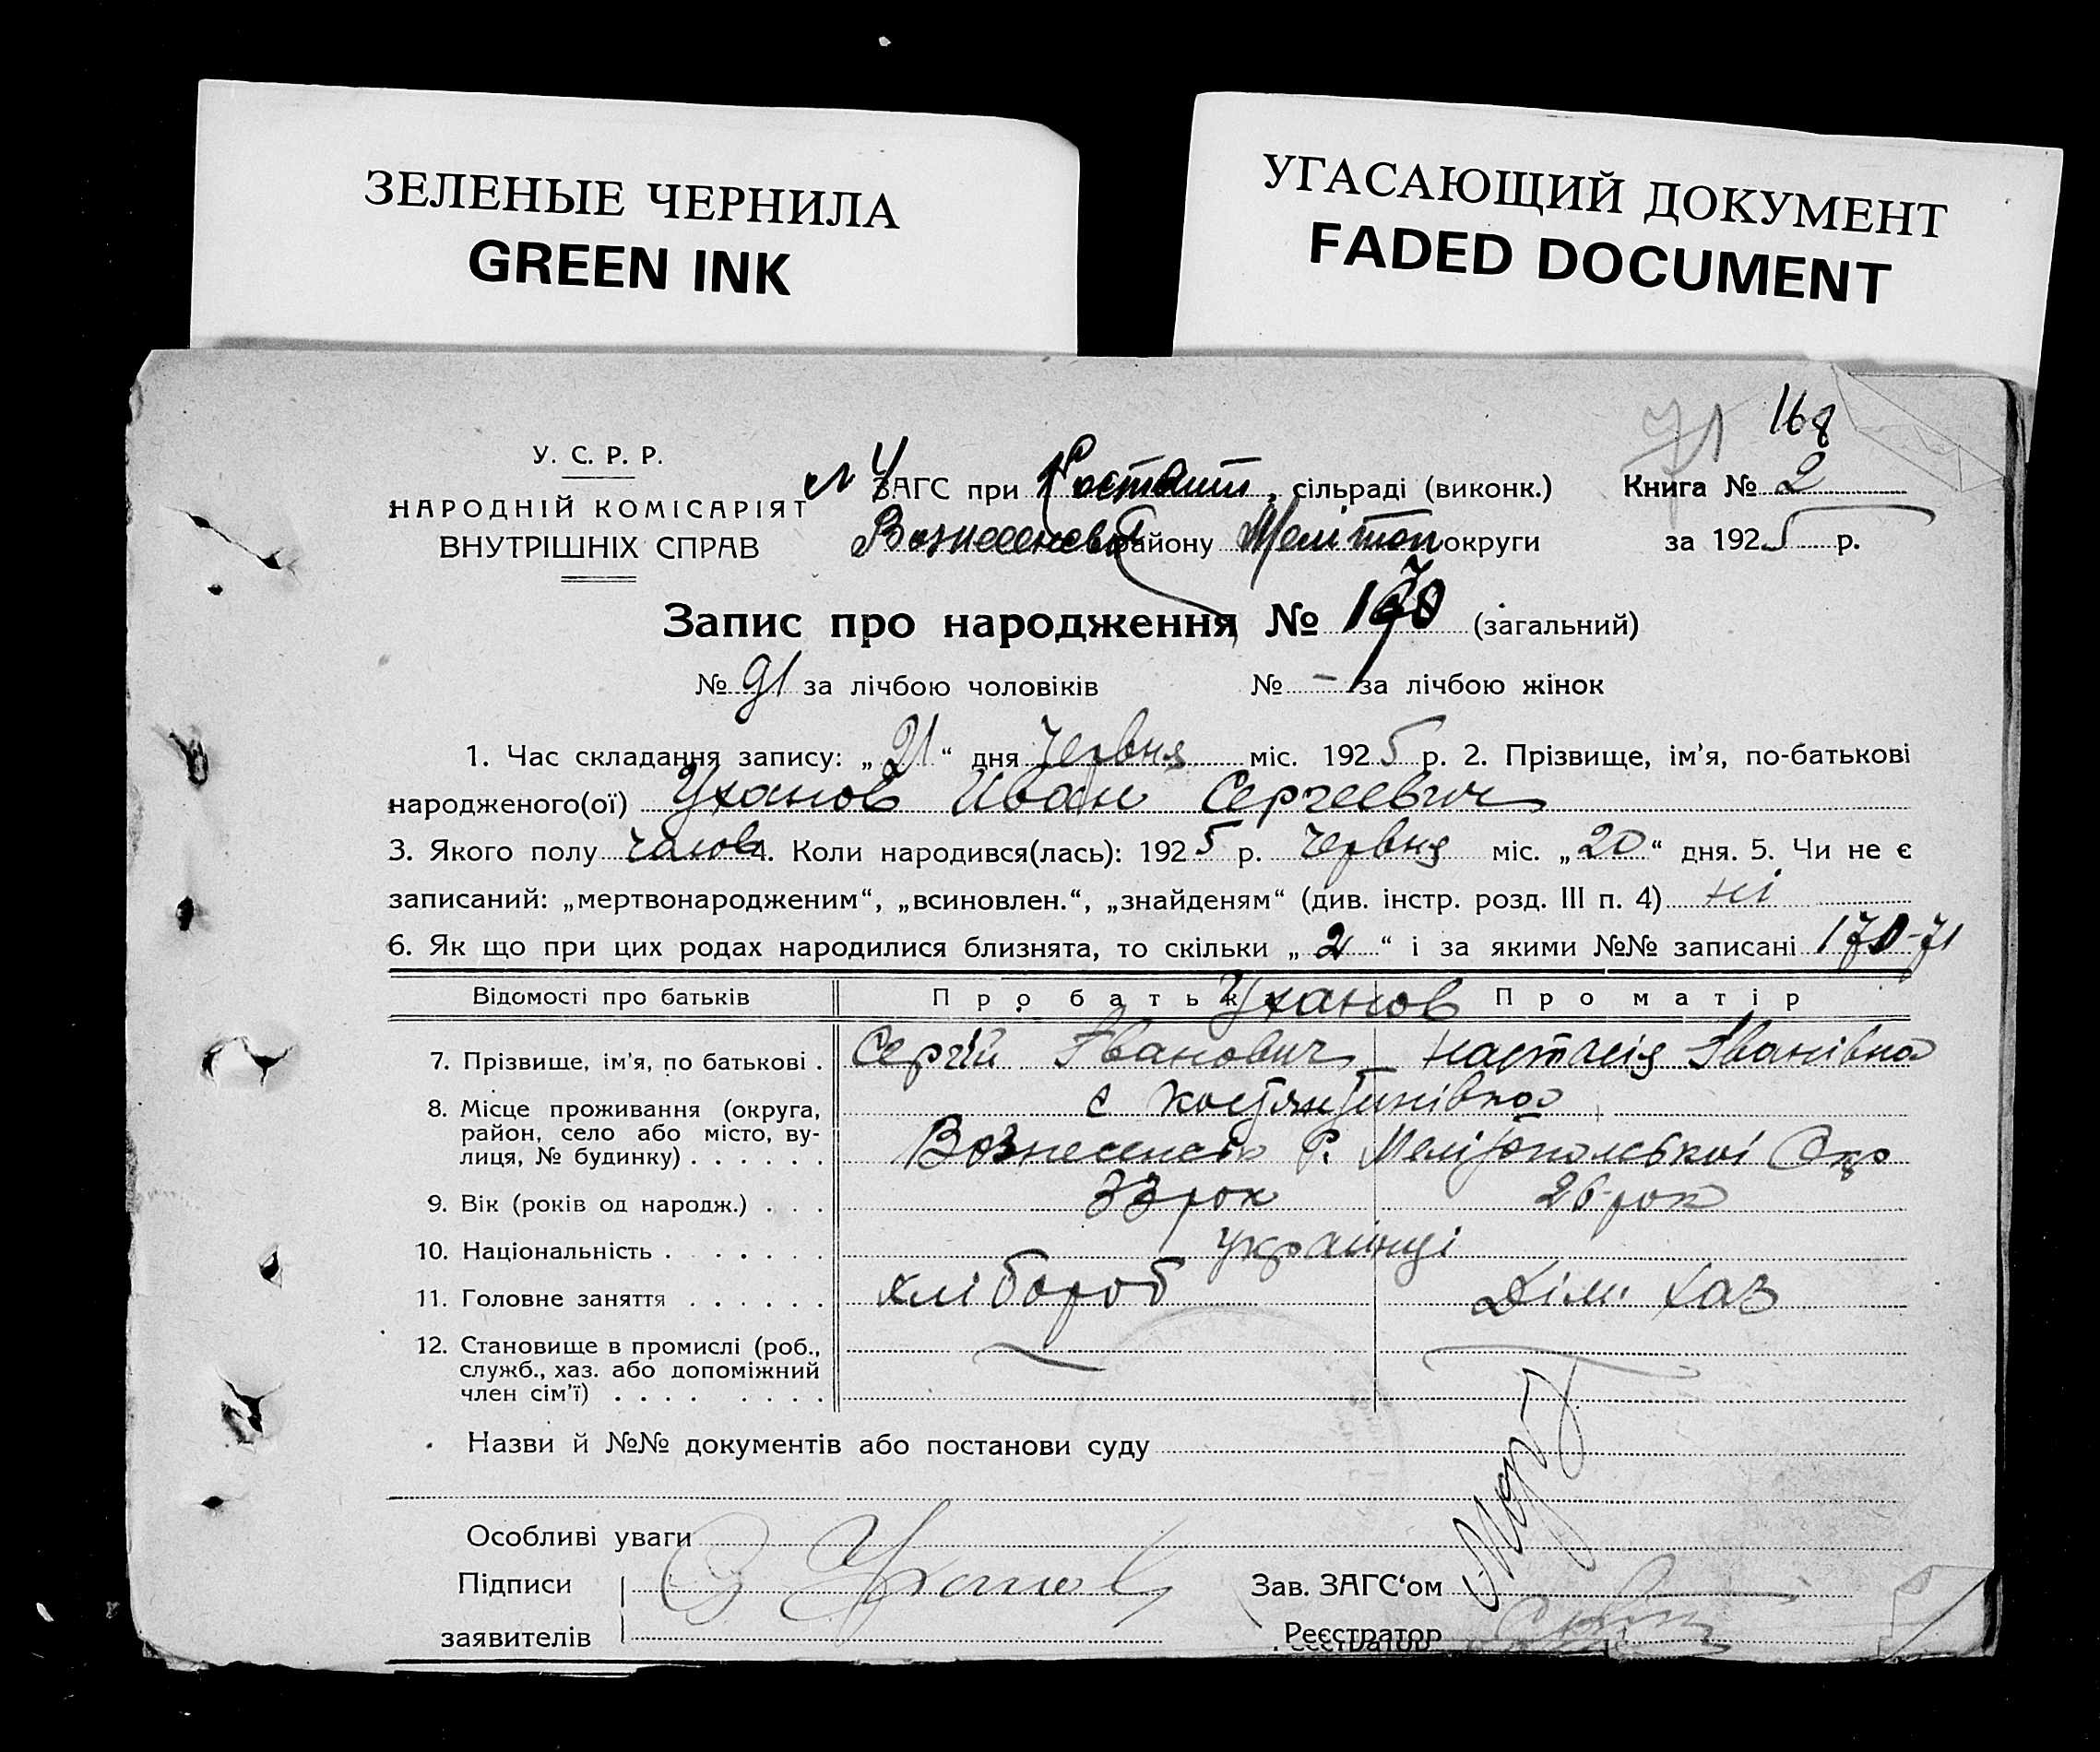 ЗЕЛЕНЫЕ ЧЕРНИЛА
GREEN INK
УГАСАЮЩИЙ ДОКУМЕНТ
FADED DOCUMENT
71 168
У. С. Р. Р.
НАРОДНІЙ КОМІСАРІЯТ
ВНУТРІШНІХ СПРАВ
ЗАГС при Костянт. сільраді (виконк.)
району Мелітоп округи
Книга № 2
за 1925 р.
Запис про народження № 170 (загальний)
№ 91 за лічбою чоловіків № - за лічбою жінок
1. Час складання запису: „21“ дня Червня міс. 1925 р. 2. Прізвище, ім’я, по-батькові
народженого(ої) Уханов Иван Сергеевич
3. Якого полу чолов 4. Коли народився(лась): 1925 р. Червня міс. „20“ дня. 5. Чи не є
записаний: „мертвонародженим“, „всиновлен.“, „знайденям“ (див. інстр. розд. III п. 4) ні
6. Як що при цих родах народилися близнята, то скільки „2“ і за якими №№ записані 170-71
Відомості про батьків Про батька Про матір
Уханов
7. Прізвище, ім’я, по батькові . Сергій Іванович Настасія Іванівна
8. Місце проживання (округа, район, село або місто, вулиця, № будинку) . . . . . . с Костянтинівка
Вознесенськ Р. Мелітопольської Окр
9. Вік (років од народж.) . . . 33 рок 26 рок
10. Національність . . . . . . українці
11. Головне заняття . . . . . . хлібороб Дім. хаз
12. Становище в промислі (роб., служб., хаз. або допоміжний член сім’ї) . . . . . . . .
Назви й №№ документів або постанови суду
Особливі уваги
Підписи Уханов Зав. ЗАГС‘ом
заявителів Реєстратор